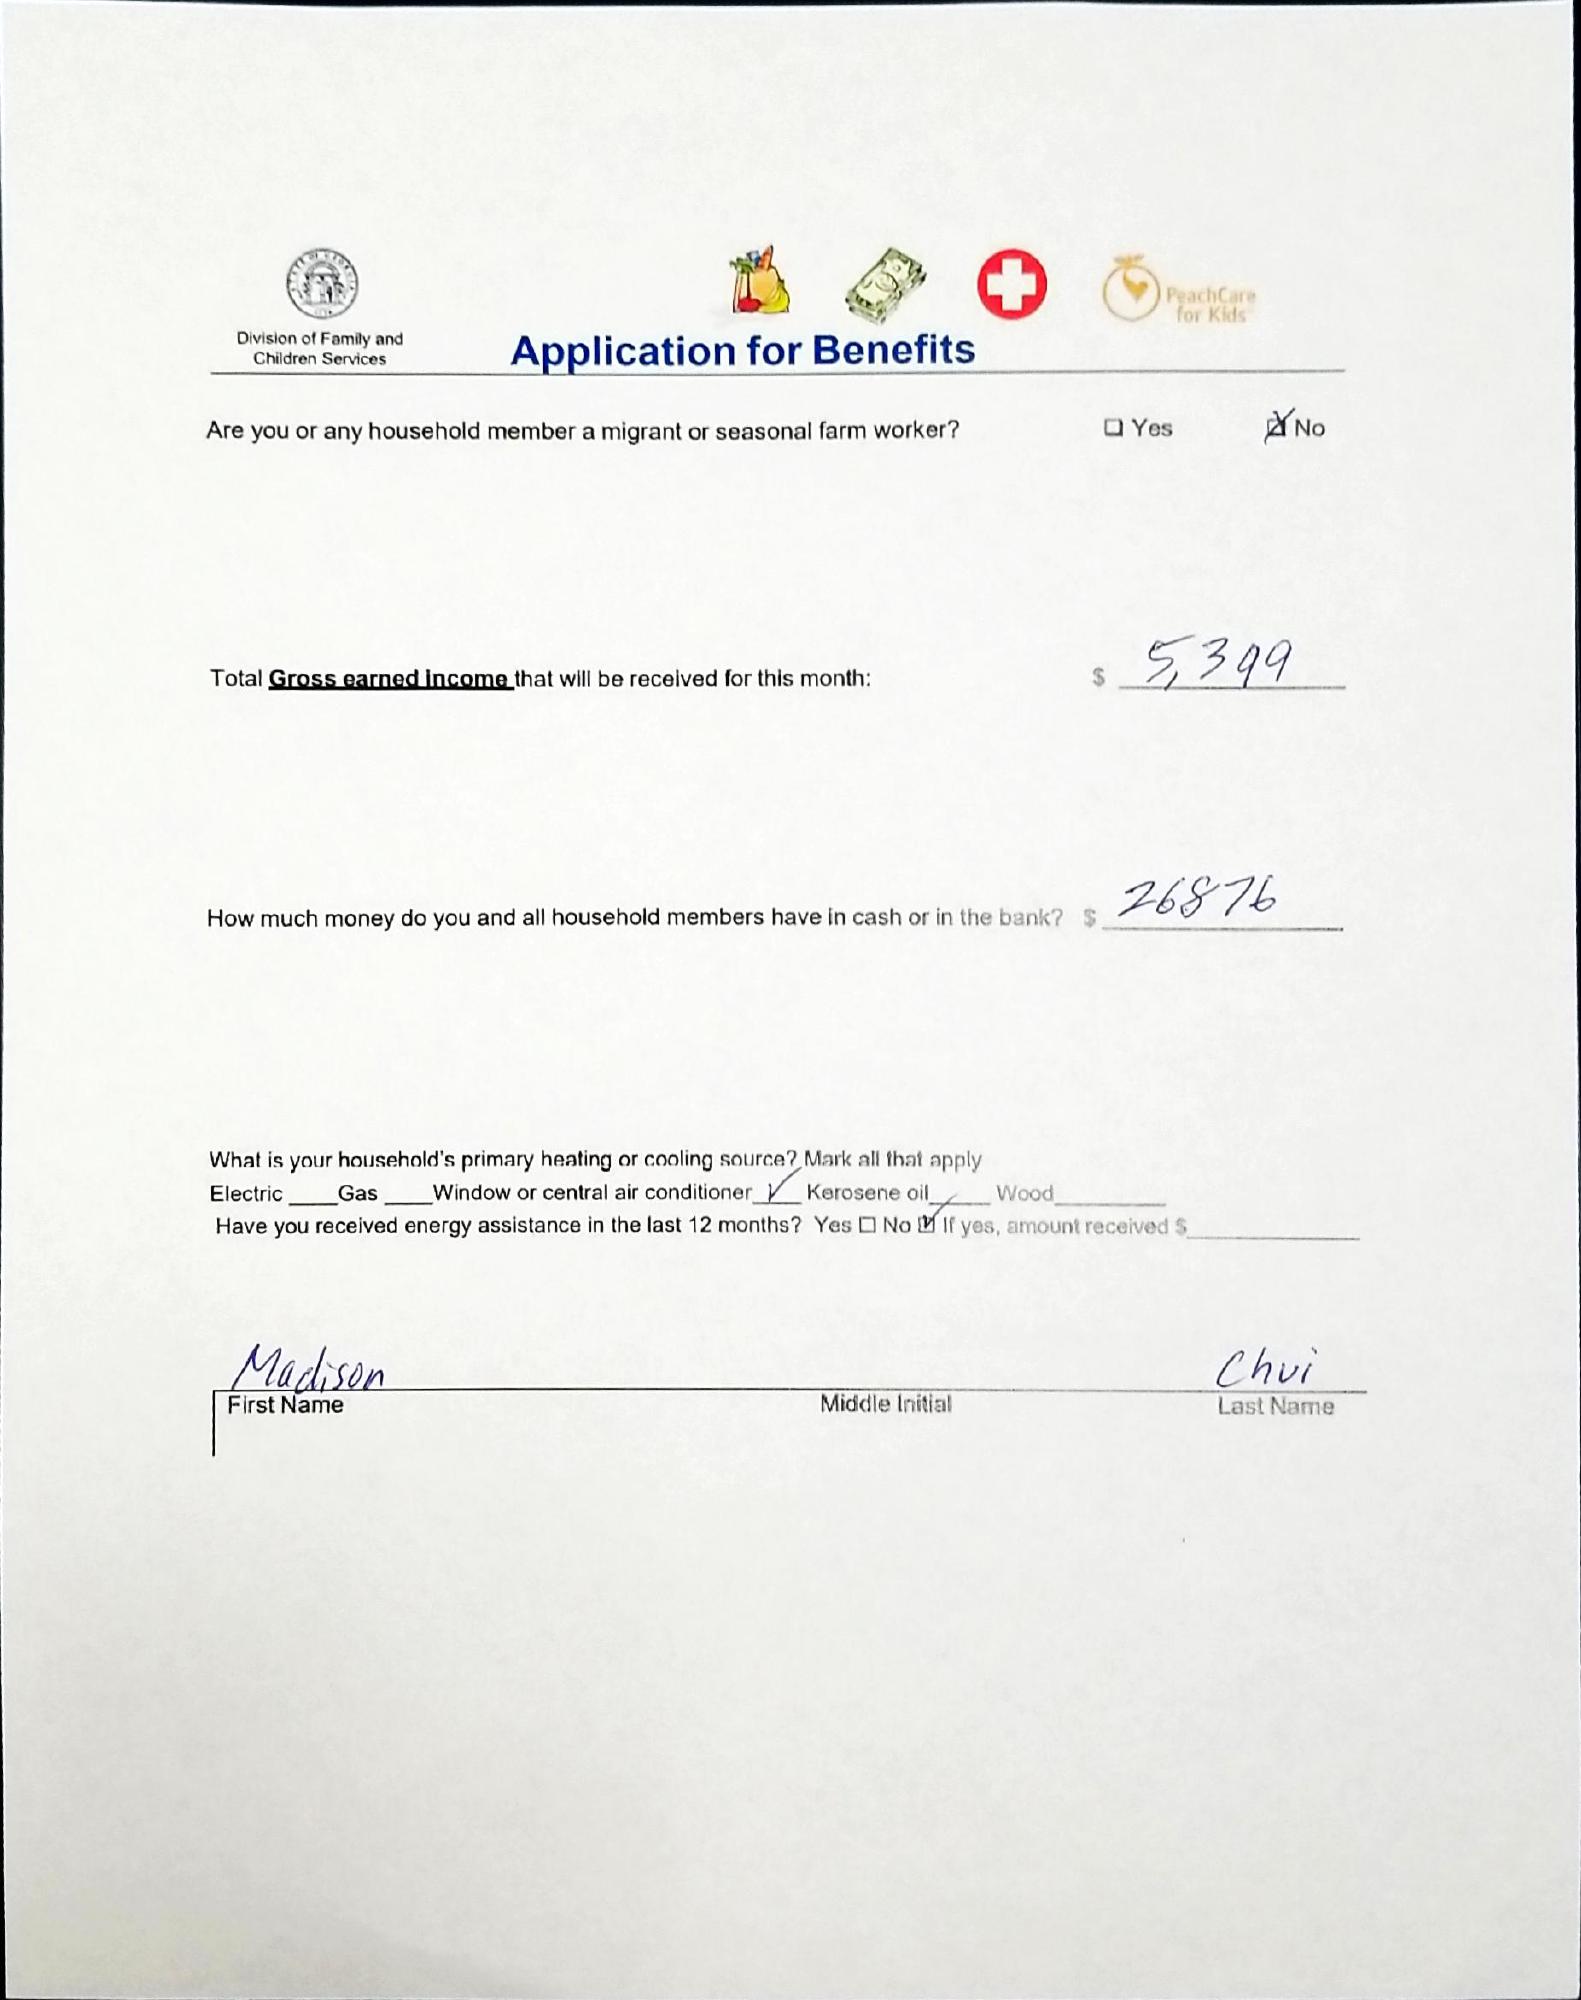 STATE OF GEORGIA
PeachCare
for Kids
Division of Family and
Children Services
Application for Benefits
Are you or any household member a migrant or seasonal farm worker? ☐ Yes ☒ No
Total Gross earned income that will be received for this month: $ 5,399
How much money do you and all household members have in cash or in the bank? $ 26876
What is your household's primary heating or cooling source? Mark all that apply
Electric ____ Gas ____ Window or central air conditioner ✓ Kerosene oil ____ Wood ____
Have you received energy assistance in the last 12 months? Yes ☐ No ☑ If yes, amount received $ ____
Madison Chui
First Name Middle Initial Last Name